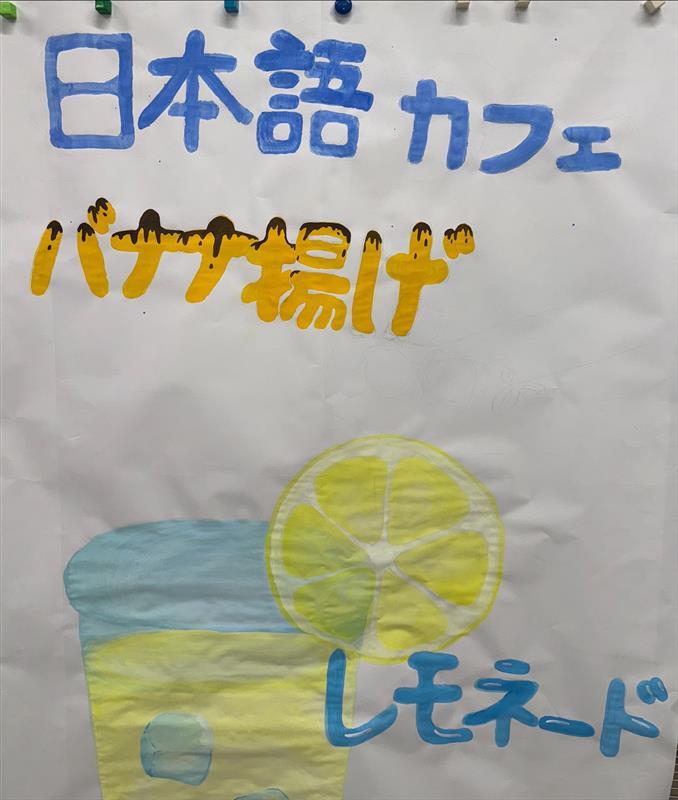 日本語カフェ
バナナ揚げ
レモネード